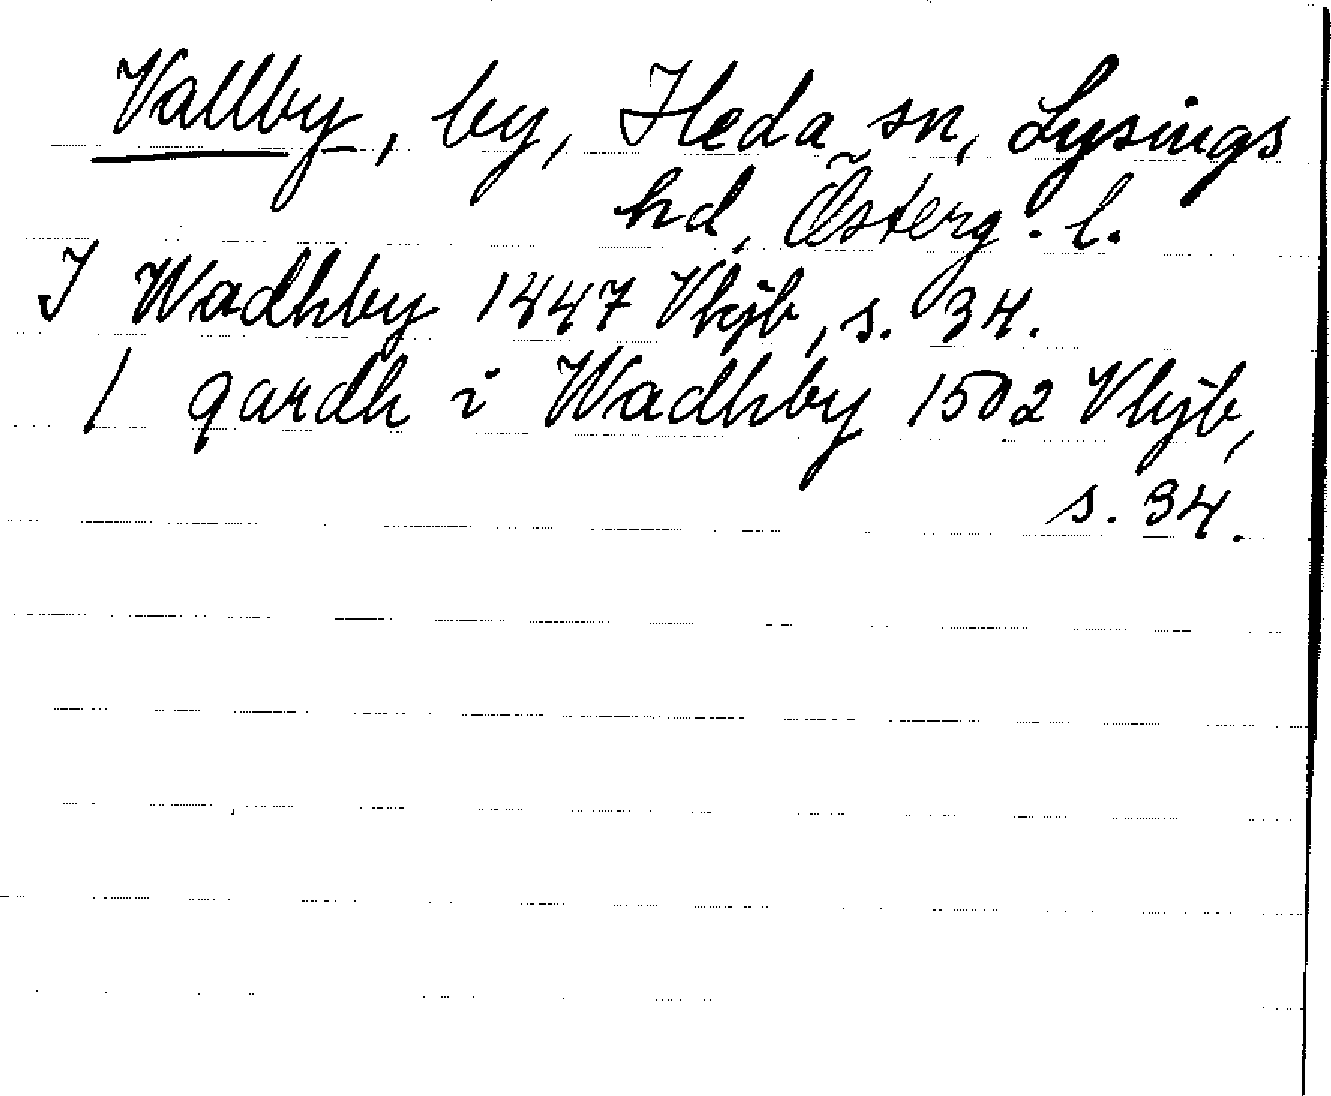 Vallby, by, Heda sn, Lysings
hd, Österg. l.
I Wadhby 1447 Vkjb, s. 34.
1 gardh i Wadhby 1502 Vkjb,
s. 34.